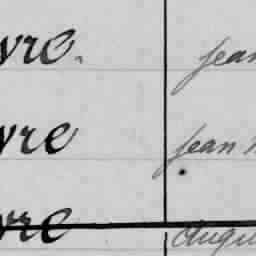 vre. Jean
vre Jean
vre Augu